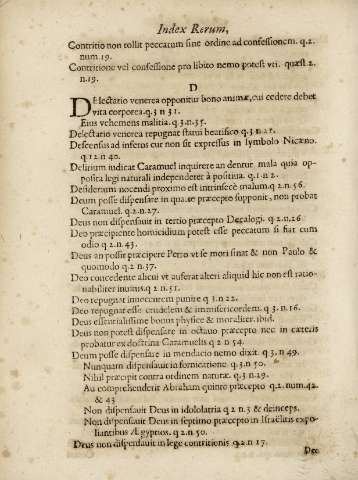 Index Rerum,
Contritio non tollit peccatum sine ordine ad confessionem. q.2.
num 19.
Contritione vel confessione pro libito nemo potest vti. quæst 2.
n.19.
D
DElectatio venerea opponitur bono animæ, cui cedere debet
vita corporea. q.3 n 31.
Eius vehemens malitia. q.3.n.35.
Delectatio venerea repugnat statui beatifico q.3 n 21.
Descensus ad inferos cur non sit expressus in symbolo Nicæno.
q.12 n 40.
Delirium iudicat Caramuel inquirere an dentur mala quia op-
posita legi naturali independenter à positiua. q.1.n 2.
Desiderium nocendi proximo est intrinsecè malum. q.2 n.56.
Deum posse dispensare in quarto præcepto supponit, non probat
Caramuel. q.2.n.27.
Deus non dispensauit in tertio præcepto Decalogi. q.2 n.26
Deo præcipiente homicidium potest esse peccatum si fiat cum
odio q.2 n.43.
Deus an possit præcipere Petro vt se mori sinat & non Paulo &
quomodo q.2 n.37.
Deo concedente alicui vt auferat alteri aliquid hic non est ratio-
nabiliter inuitus. q.2 n.51.
Deo repugnat innocentem punire q 1.n.22.
Deo repugnat esse crudelem & immisericordem. q 3. n.16.
Deus essentialissime bonus physice & moraliter. ibid.
Deus non potest dispensare in octauo præcepto nec in cæteris
probatur ex doctrina Caramuelis q 2 n 54.
Deum posse dispensare in mendacio nemo dixit q 3. n 49.
Nunquam dispensauit in fornicatione q.3.n 50.
Nihil præcipit contra ordinem naturæ q.3.n.29.
An comprehenderit Abraham quinto præcepto q.2. num.42.
& 43
Non dispensauit Deus in idololatria q 2 n.3 & deinceps.
Non dispensauit Deus in septimo præcepto in Israëlitis expo-
liantibus Ægyptios. q.2 n.50.
Deus non dispensauit in lege contritionis q.2.n 17.
Deo